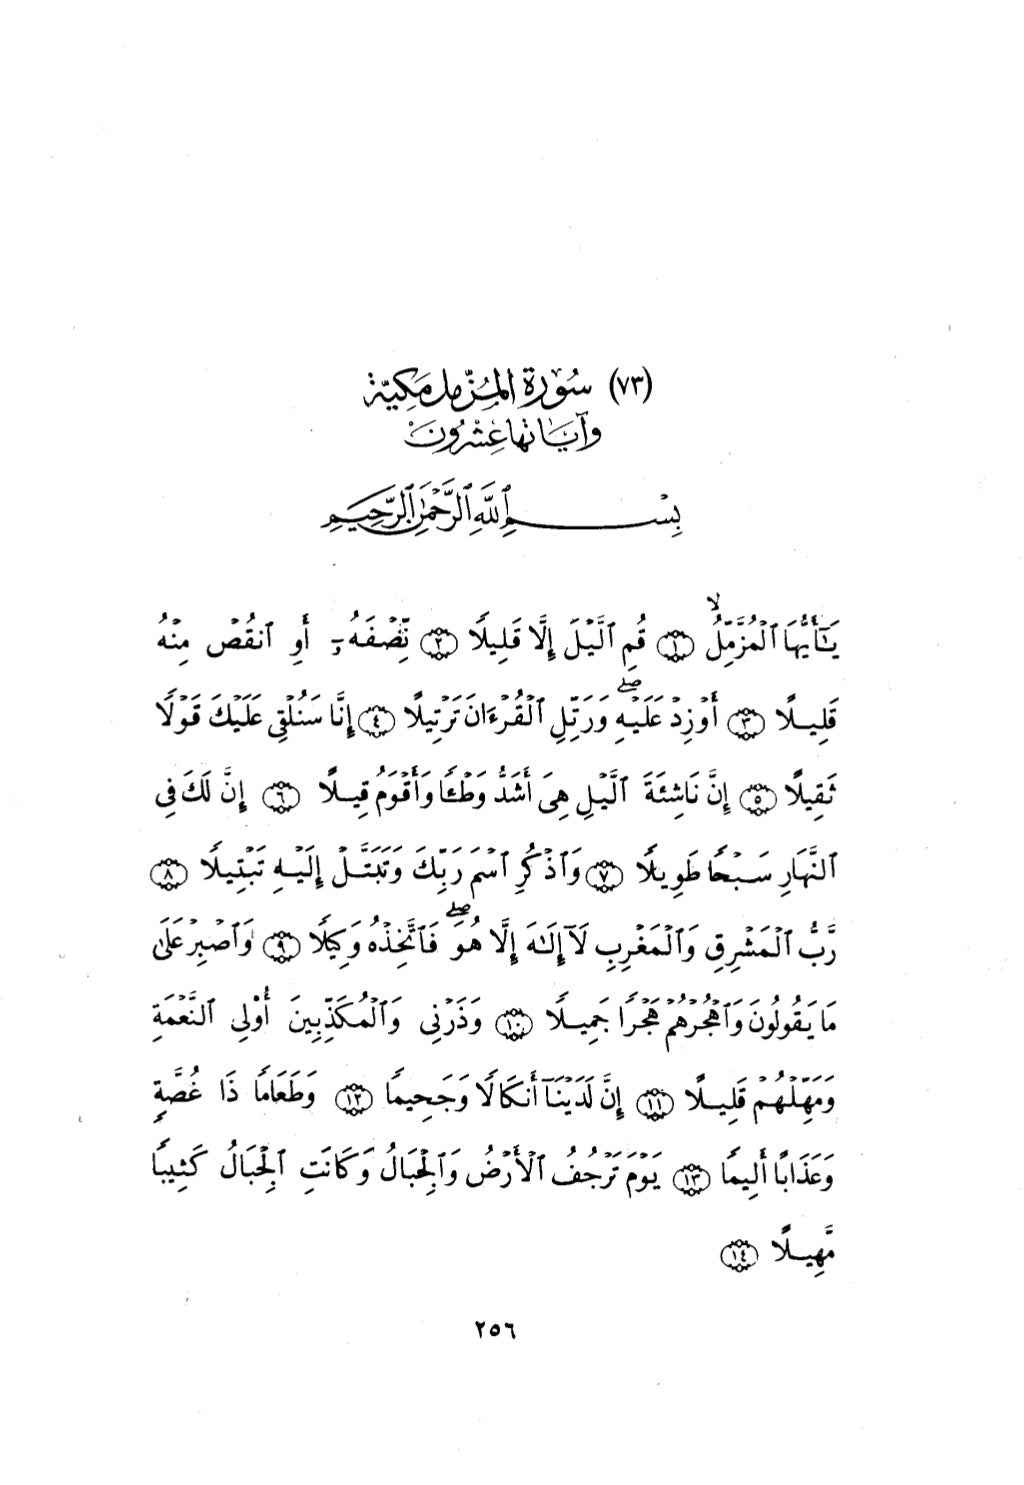 (٧٣) سُورَة المُزّمل مَكِيّة
وَآيَاتهَا عِشْرُون
بِسْمِ ٱللَّهِ ٱلرَّحْمَٰنِ ٱلرَّحِيمِ
يَٰٓأَيُّهَا ٱلْمُزَّمِّلُ ۙ ۝١ قُمِ ٱلَّيْلَ إِلَّا قَلِيلًا ۝٢ نِّصْفَهُۥٓ أَوِ ٱنقُصْ مِنْهُ
قَلِيلًا ۝٣ أَوْ زِدْ عَلَيْهِ ۖ وَرَتِّلِ ٱلْقُرْءَانَ تَرْتِيلًا ۝٤ إِنَّا سَنُلْقِى عَلَيْكَ قَوْلًا
ثَقِيلًا ۝٥ إِنَّ نَاشِئَةَ ٱلَّيْلِ هِىَ أَشَدُّ وَطْـًٔا وَأَقْوَمُ قِيلًا ۝٦ إِنَّ لَكَ فِى
ٱلنَّهَارِ سَبْحًا طَوِيلًا ۝٧ وَٱذْكُرِ ٱسْمَ رَبِّكَ وَتَبَتَّلْ إِلَيْهِ تَبْتِيلًا ۝٨
رَّبُّ ٱلْمَشْرِقِ وَٱلْمَغْرِبِ لَآ إِلَٰهَ إِلَّا هُوَ ۖ فَٱتَّخِذْهُ وَكِيلًا ۝٩ وَٱصْبِرْ عَلَىٰ
مَا يَقُولُونَ وَٱهْجُرْهُمْ هَجْرًا جَمِيلًا ۝١٠ وَذَرْنِى وَٱلْمُكَذِّبِينَ أُوْلِى ٱلنَّعْمَةِ
وَمَهِّلْهُمْ قَلِيلًا ۝١١ إِنَّ لَدَيْنَآ أَنكَالًا وَجَحِيمًا ۝١٢ وَطَعَامًا ذَا غُصَّةٍ
وَعَذَابًا أَلِيمًا ۝١٣ يَوْمَ تَرْجُفُ ٱلْأَرْضُ وَٱلْجِبَالُ وَكَانَتِ ٱلْجِبَالُ كَثِيبًا
مَّهِيلًا ۝١٤
٢٥٦